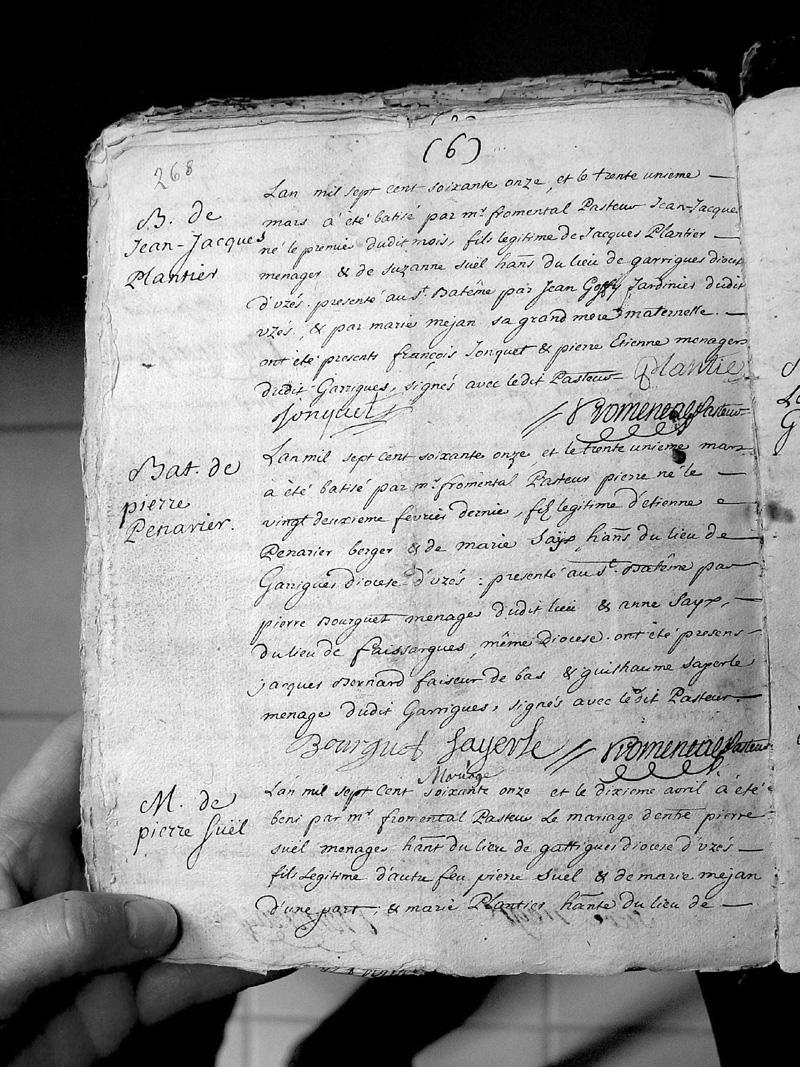 (6)
268
B. de
Jean-Jacques
Plantier
Lan mil sept cent soixante onze, et le trente unieme —
mars à été batisé par mr. fromental Pasteur Jean-Jacques
né le premier dudit mois, fils legitime de Jacques Plantier —
menager & de suzanne suël hans du lieu de garrigues dioce
d'uzés. presenté au st. Batême par Jean Jardinier dudit
uzés, & par marie mejan sa grand mere maternelle. —
ont été presents françois Jonquet & pierre Etienne menagers
dudit Garrigues, signés avec le dit Pasteur — Plantie
Jonquet
fromental Pasteur
Bat. de
pierre
Penarier.
Lan mil sept cent soixante onze et le trente unieme mars
à été batisé par mr. fromental Pasteur pierre né le —
vingt deuxieme fevrier dernier, fils legitime d'etienne
Penarier berger & de marie Sayx hans du lieu de
Garrigues diocese d'uzés : presenté au st. Batême par
pierre Bourguet menager dudit lieu & anne Sayx,
du lieu de faissargues, même Diocese. ont été presens
jacques Bernard faiseur de bas & guilhaume sayerle
menager dudit Garrigues, signés avec le dit Pasteur. —
Bourguet Sayerle fromental Pasteur
Mariage
M. de
pierre Suël
Lan mil sept Cent soixante onze et le dixieme avril à été
beni par mr fromental Pasteur Le mariage d'entre pierre
suël menager hant du lieu de gattigues diocese d'uzés —
fils Legitime d'autre feu pierre suel & de marie mejan
d'une part ; & marie Plantier hante du lieu de —